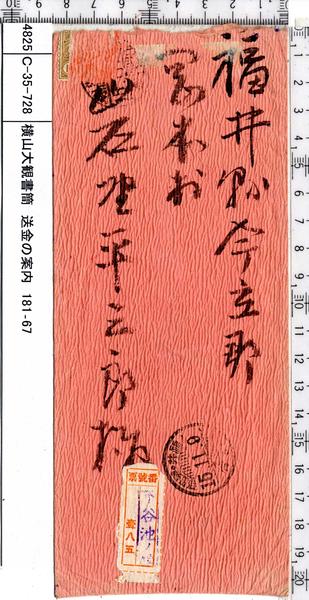 福井縣今立郡
岡本村
岩野平三郎様
15.11.9
番號票
下谷池ノ端
壹八五
4825 C-35-728 横山大観書簡 送金の案内 181-67